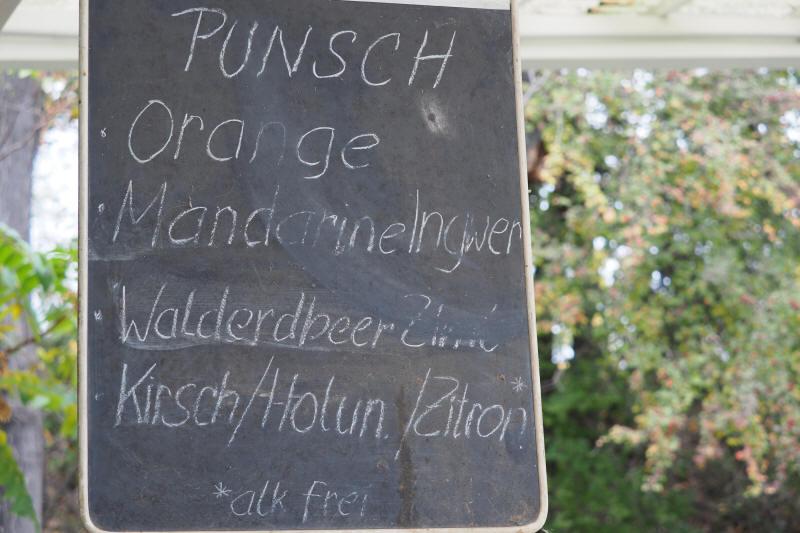 PUNSCH
· Orange
· Mandarine Ingwer
· Walderdbeer Zimt
· Kirsch/Holun. /Zitron*
*alk frei